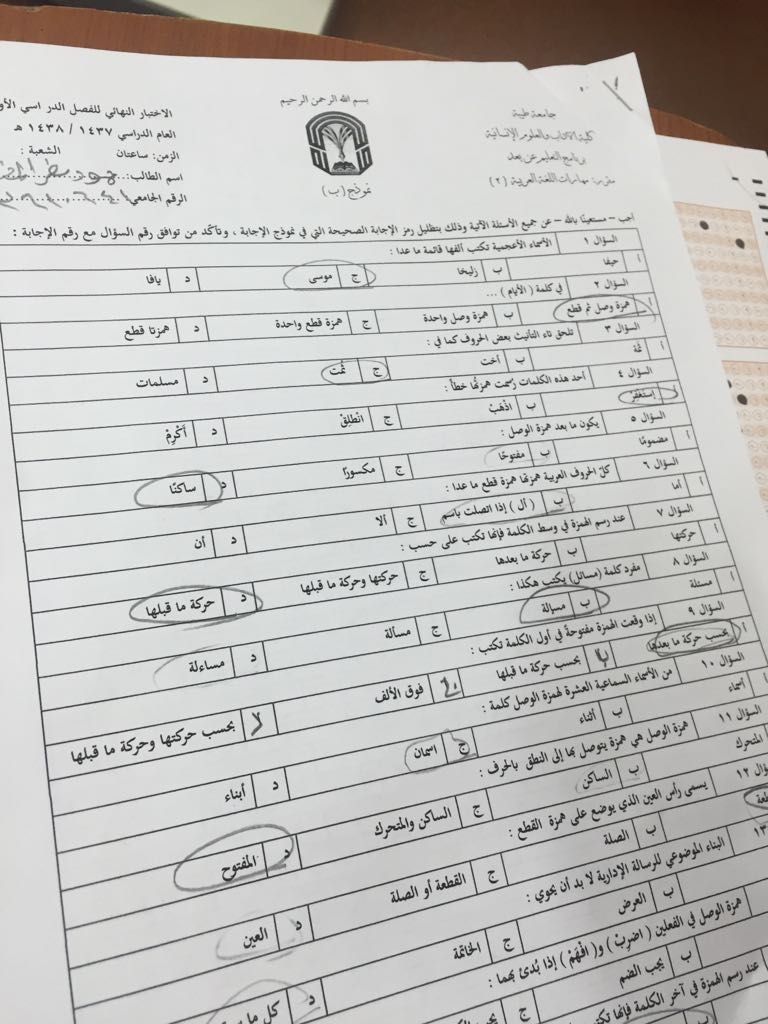 بسم الله الرحمن الرحيم
جامعة طيبة
كلية الآداب والعلوم الإنسانية
برنامج التعليم عن بعد
مقرر: مهارات اللغة العربية (٢)
نموذج (ب)
الاختبار النهائي للفصل الدراسي الأو
العام الدراسي ١٤٣٧ / ١٤٣٨ هـ
الزمن: ساعتان الشعبة :
اسم الطالب:
الرقم الجامعي
أجب – مستعينًا بالله – عن جميع الأسئلة الآتية وذلك بتظليل رمز الإجابة الصحيحة التي في نموذج الإجابة ، وتأكد من توافق رقم السؤال مع رقم الإجابة :
السؤال ١ الأسماء الأعجمية تكتب ألفها قائمة ما عدا :
أ حيفا ب زليخا ج موسى د يافا
السؤال ٢ في كلمة ( الأيام ) ...
أ همزة وصل ثم قطع ب همزة وصل واحدة ج همزة قطع واحدة د همزتا قطع
السؤال ٣ تلحق تاء التأنيث بعض الحروف كما في :
أ ثمة ب أخت ج ثُمَّت د مسلمات
السؤال ٤ أحد هذه الكلمات رُسمت همزتُها خطأ :
أ إستغفر ب اذْهَبْ ج انْطلِقْ د أَكْرِمْ
السؤال ٥ يكون ما بعد همزة الوصل :
أ مضمومًا ب مفتوحًا ج مكسورًا د ساكنًا
السؤال ٦ كلّ الحروف العربية همزتها همزة قطع ما عدا :
أ أما ب ( أل ) إذا اتصلت باسم ج ألا د أن
السؤال ٧ عند رسم الهمزة في وسط الكلمة فإنها تكتب على حسب :
أ حركتها ب حركة ما بعدها ج حركتها وحركة ما قبلها د حركة ما قبلها
السؤال ٨ مفرد كلمة (مسائل) يكتب هكذا :
أ مسئلة ب مسالة ج مسألة د مساءلة
السؤال ٩ إذا وقعت الهمزة مفتوحةً في أول الكلمة تكتب :
أ بحسب حركة ما بعدها ب بحسب حركة ما قبلها فوق الألف بحسب حركتها وحركة ما قبلها
السؤال ١٠ من الأسماء السماعية العشرة لهمزة الوصل كلمة :
أ أسماء ب أثناء ج اسمان د أبناء
السؤال ١١ همزة الوصل هي همزة يتوصل بها إلى النطق بالحرف :
المتحرك ب الساكن ج الساكن والمتحرك د المفتوح
ؤال ١٢ يسمى رأس العين الذي يوضع على همزة القطع :
طعة ب الصلة ج القطعة أو الصلة د العين
١٣ البناء الموضوعي للرسالة الإدارية لا بد أن يحوي :
ب العرض ج الخاتمة د كل ما
همزة الوصل في الفعلين ( اضربْ ) و( افْهَمْ ) إذا بُدئ بهما :
ب يجب الضم ج
عند رسم الهمزة في آخر الكلمة فإنها تكتب